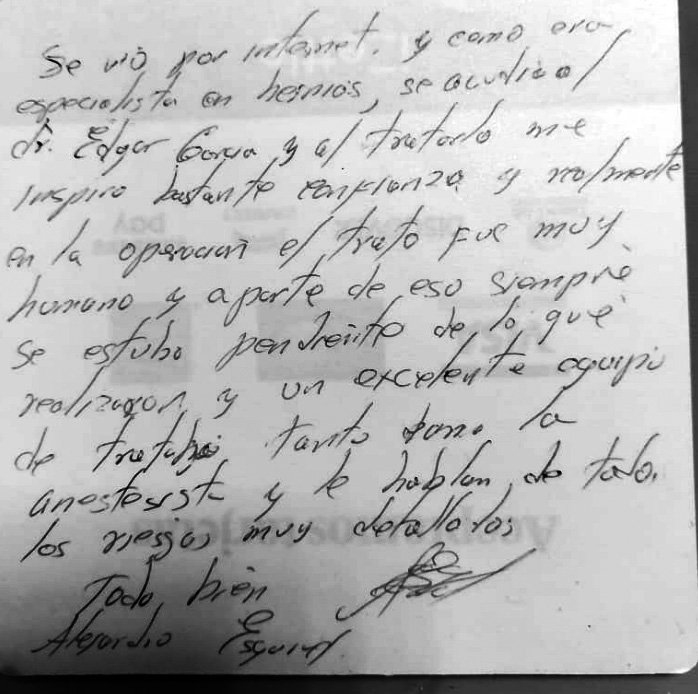 Se vió por internet. y como era
especialista en hernias, se acudio al
dr. Edgar Garcia y al tratarlo me
inspiro bastante confianza y realmente
en la operación el trato fue muy
humano y aparte de eso siempre
se estubo pendiente de lo que
realizaron y un excelente equipo
de trabajo tanto como la
anestesista y le hablan de todo.
los riesgos muy detallados
Todo bien
Alejandro Esquivel